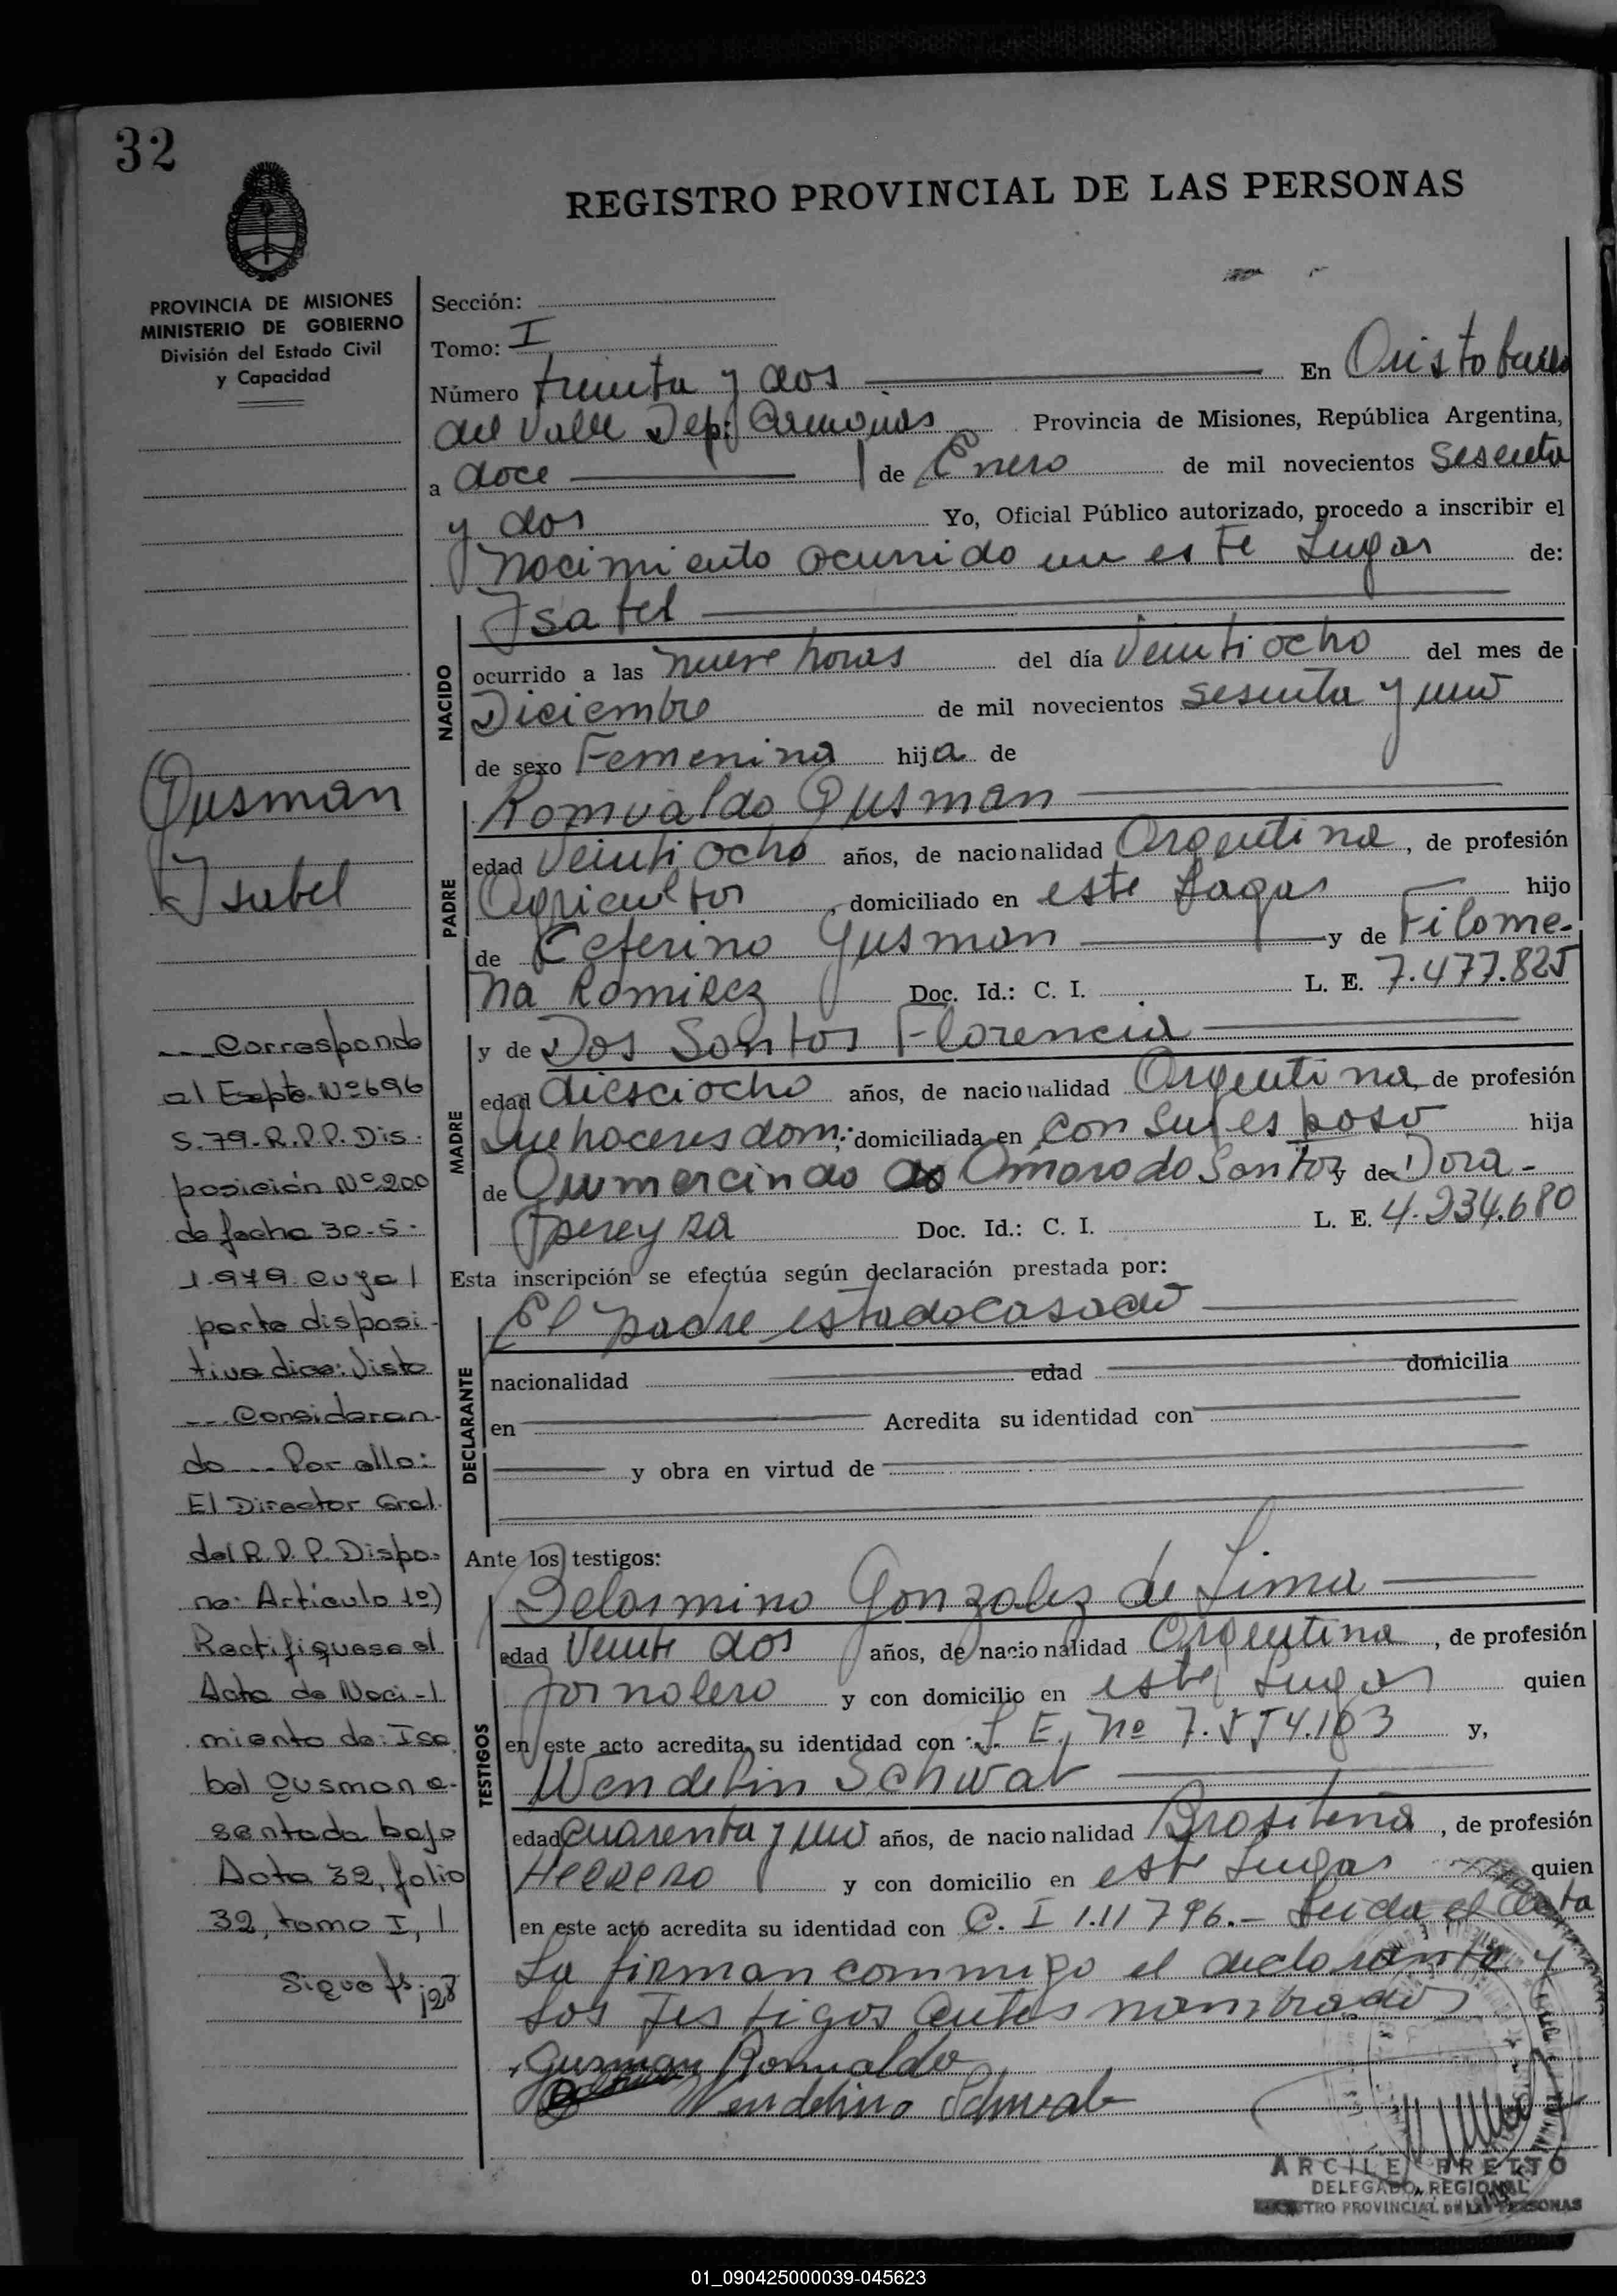 32
REGISTRO PROVINCIAL DE LAS PERSONAS
PROVINCIA DE MISIONES
MINISTERIO DE GOBIERNO
División del Estado Civil
y Capacidad
Gusman
Isabel
---Corresponde
al Expte. Nº 696
S.79-R.P.P. Dis-
posición Nº 200
de fecha 30-5-
1.979 cuya
parte disposi-
tiva dice: Visto
---Consideran-
do--- Por ello:
El Director Gral.
del R.P.P. Dispo-
ne: Artículo 1º)
Rectifiquese el
Acta de Naci-
miento de: Isa
bel Gusman a-
sentada bajo
Acta 32, folio
32, tomo I,
Sigue fs 128
Sección:
Tomo: I
Número treinta y dos En Cristobal
del Valle Dep: Provincia de Misiones, República Argentina,
a doce de Enero de mil novecientos sesenta
y dos Yo, Oficial Público autorizado, procedo a inscribir el
Nacimiento ocurrido en este Lugar de:
Isabel
NACIDO
ocurrido a las nueve horas del día Veintiocho del mes de
Diciembre de mil novecientos sesenta y uno
de sexo Femenina hija de
PADRE
Romualdo Gusman
edad Veintiocho años, de nacionalidad Argentina, de profesión
Agricultor, domiciliado en este Lugar hijo
de Ceferino Gusman y de Filome-
na Ramirez Doc. Id.: C. I. L. E. 7.477.825
MADRE
y de Dos Santos Florencia
edad diesciocho años, de nacionalidad Argentina, de profesión
Quehaceres dom: domiciliada en con su esposo hija
de Gumercindo Amaro do Santos y de Dora
pereyra Doc. Id.: C. I. L. E. 4.234.680
Esta inscripción se efectúa según declaración prestada por:
DECLARANTE
El padre estado casado
nacionalidad edad domicilia
en Acredita su identidad con
y obra en virtud de
Ante los testigos:
TESTIGOS
Belarmino Gonzalez de Lima
edad Veinte dos años, de nacionalidad Argentina, de profesión
Jornalero y con domicilio en este Lugar quien
en este acto acredita su identidad con: L. E. Nº 7.554.183 y,
Wendelin Schwab
edad cuarenta y uno años, de nacionalidad Brasileña, de profesión
Herrero y con domicilio en este Lugar quien
en este acto acredita su identidad con C. I 1.11796.- Leida el Acta
La firman conmigo el declarante y
los Testigos antes nombrados
Guzman Romualdo
Wendelino Schwab
DELEGADO REGIONAL
REGISTRO PROVINCIAL DE LAS PERSONAS
01_090425000039-045623